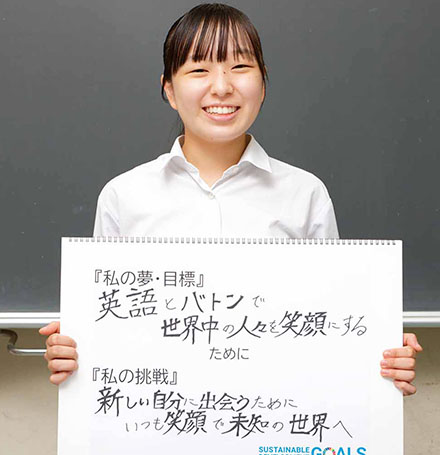 『私の夢・目標』
英語とバトンで
世界中の人々を笑顔にする
ために
『私の挑戦』
新しい自分に出会うために
いつも笑顔で未知の世界へ
SUSTAINABLE
GOALS